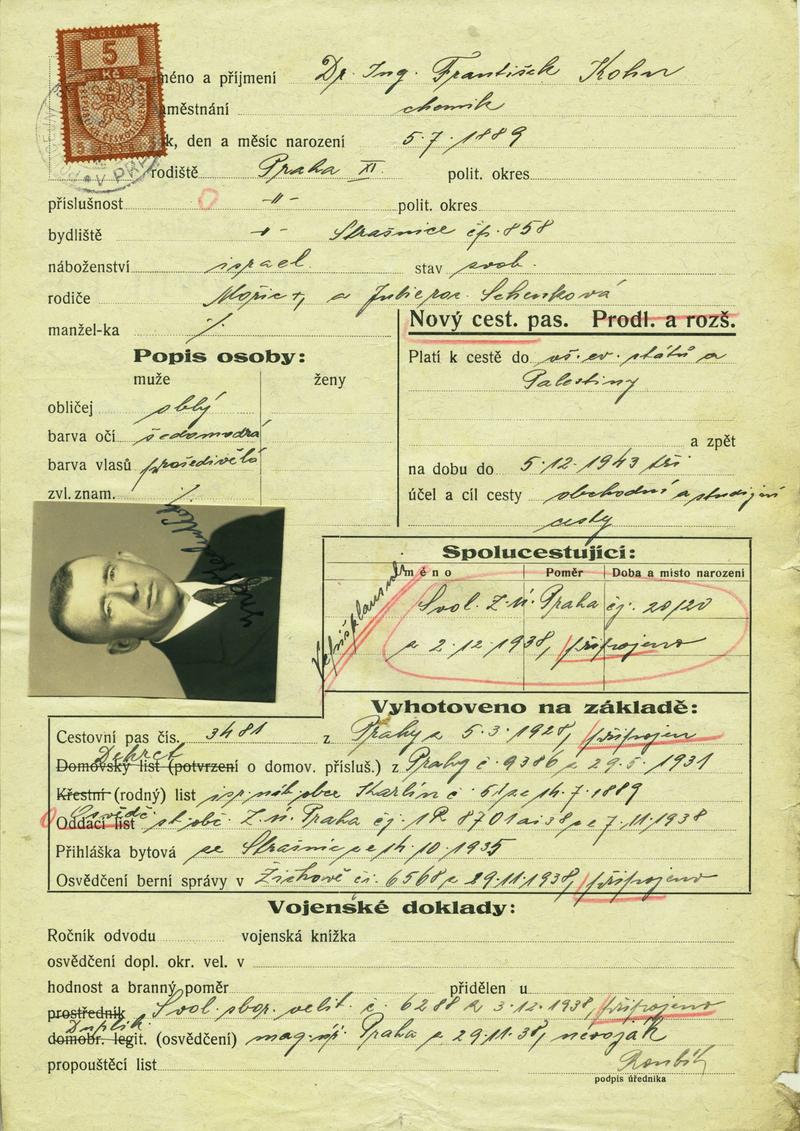 KOLEK
5
Kč
méno a příjmení Dr. Ing. František Kohn
městnání chemik
k, den a měsíc narození 5.7.1889
rodiště Praha XI. polit. okres
příslušnost -"- polit. okres
bydliště -"- Strašnice čp. 858
náboženství israel. stav svob.
rodiče Mořic +, a Julie roz. Schenková
manžel-ka ./.
Nový cest. pas. Prodl. a rozš.
Popis osoby:
muže ženy
Platí k cestě do vš. ev. států a
Palestiny
obličej oblý
barva očí šedomodrá
a zpět
barva vlasů prošedivělá
na dobu do 5.12.1943 tři
zvl. znam.
účel a cíl cesty obchodní a studijní
cesty
Spolucestující:
méno Poměr Doba a místo narození
Svol. Z. ú. Praha čj. 20/20
z 2.12.1938, připojeno
Vyhotoveno na základě:
Cestovní pas čís. 3481 z Prahy z 5.3.1928, připojen
Dekret
Domovský list (potvrzení o domov. přísluš.) z Prahy č. 9386 z 29.5.1931
Křestní (rodný) list isr. náb. obce Karlín č. 51 ze 14.7.1889
Osvědč.
Oddací list st. obč. Z. ú. Praha čj. 8701 ai 38 ze 7.11.1938
Přihláška bytová ze Strašnic ze 14.10.1935
Osvědčení berní správy v Žižkově čj. 6568 z 29.11.1938, připojeno
Vojenské doklady:
Ročník odvodu vojenská knížka
osvědčení dopl. okr. vel. v
hodnost a branný poměr přidělen u
prostředník Svol. sbor. velit. č. 6288 z 3.12.1938, připojeno
Duplik.
domobr. legit. (osvědčení) mag. Praha z 29.11.38, nevoják
propouštěcí list
podpis úředníka